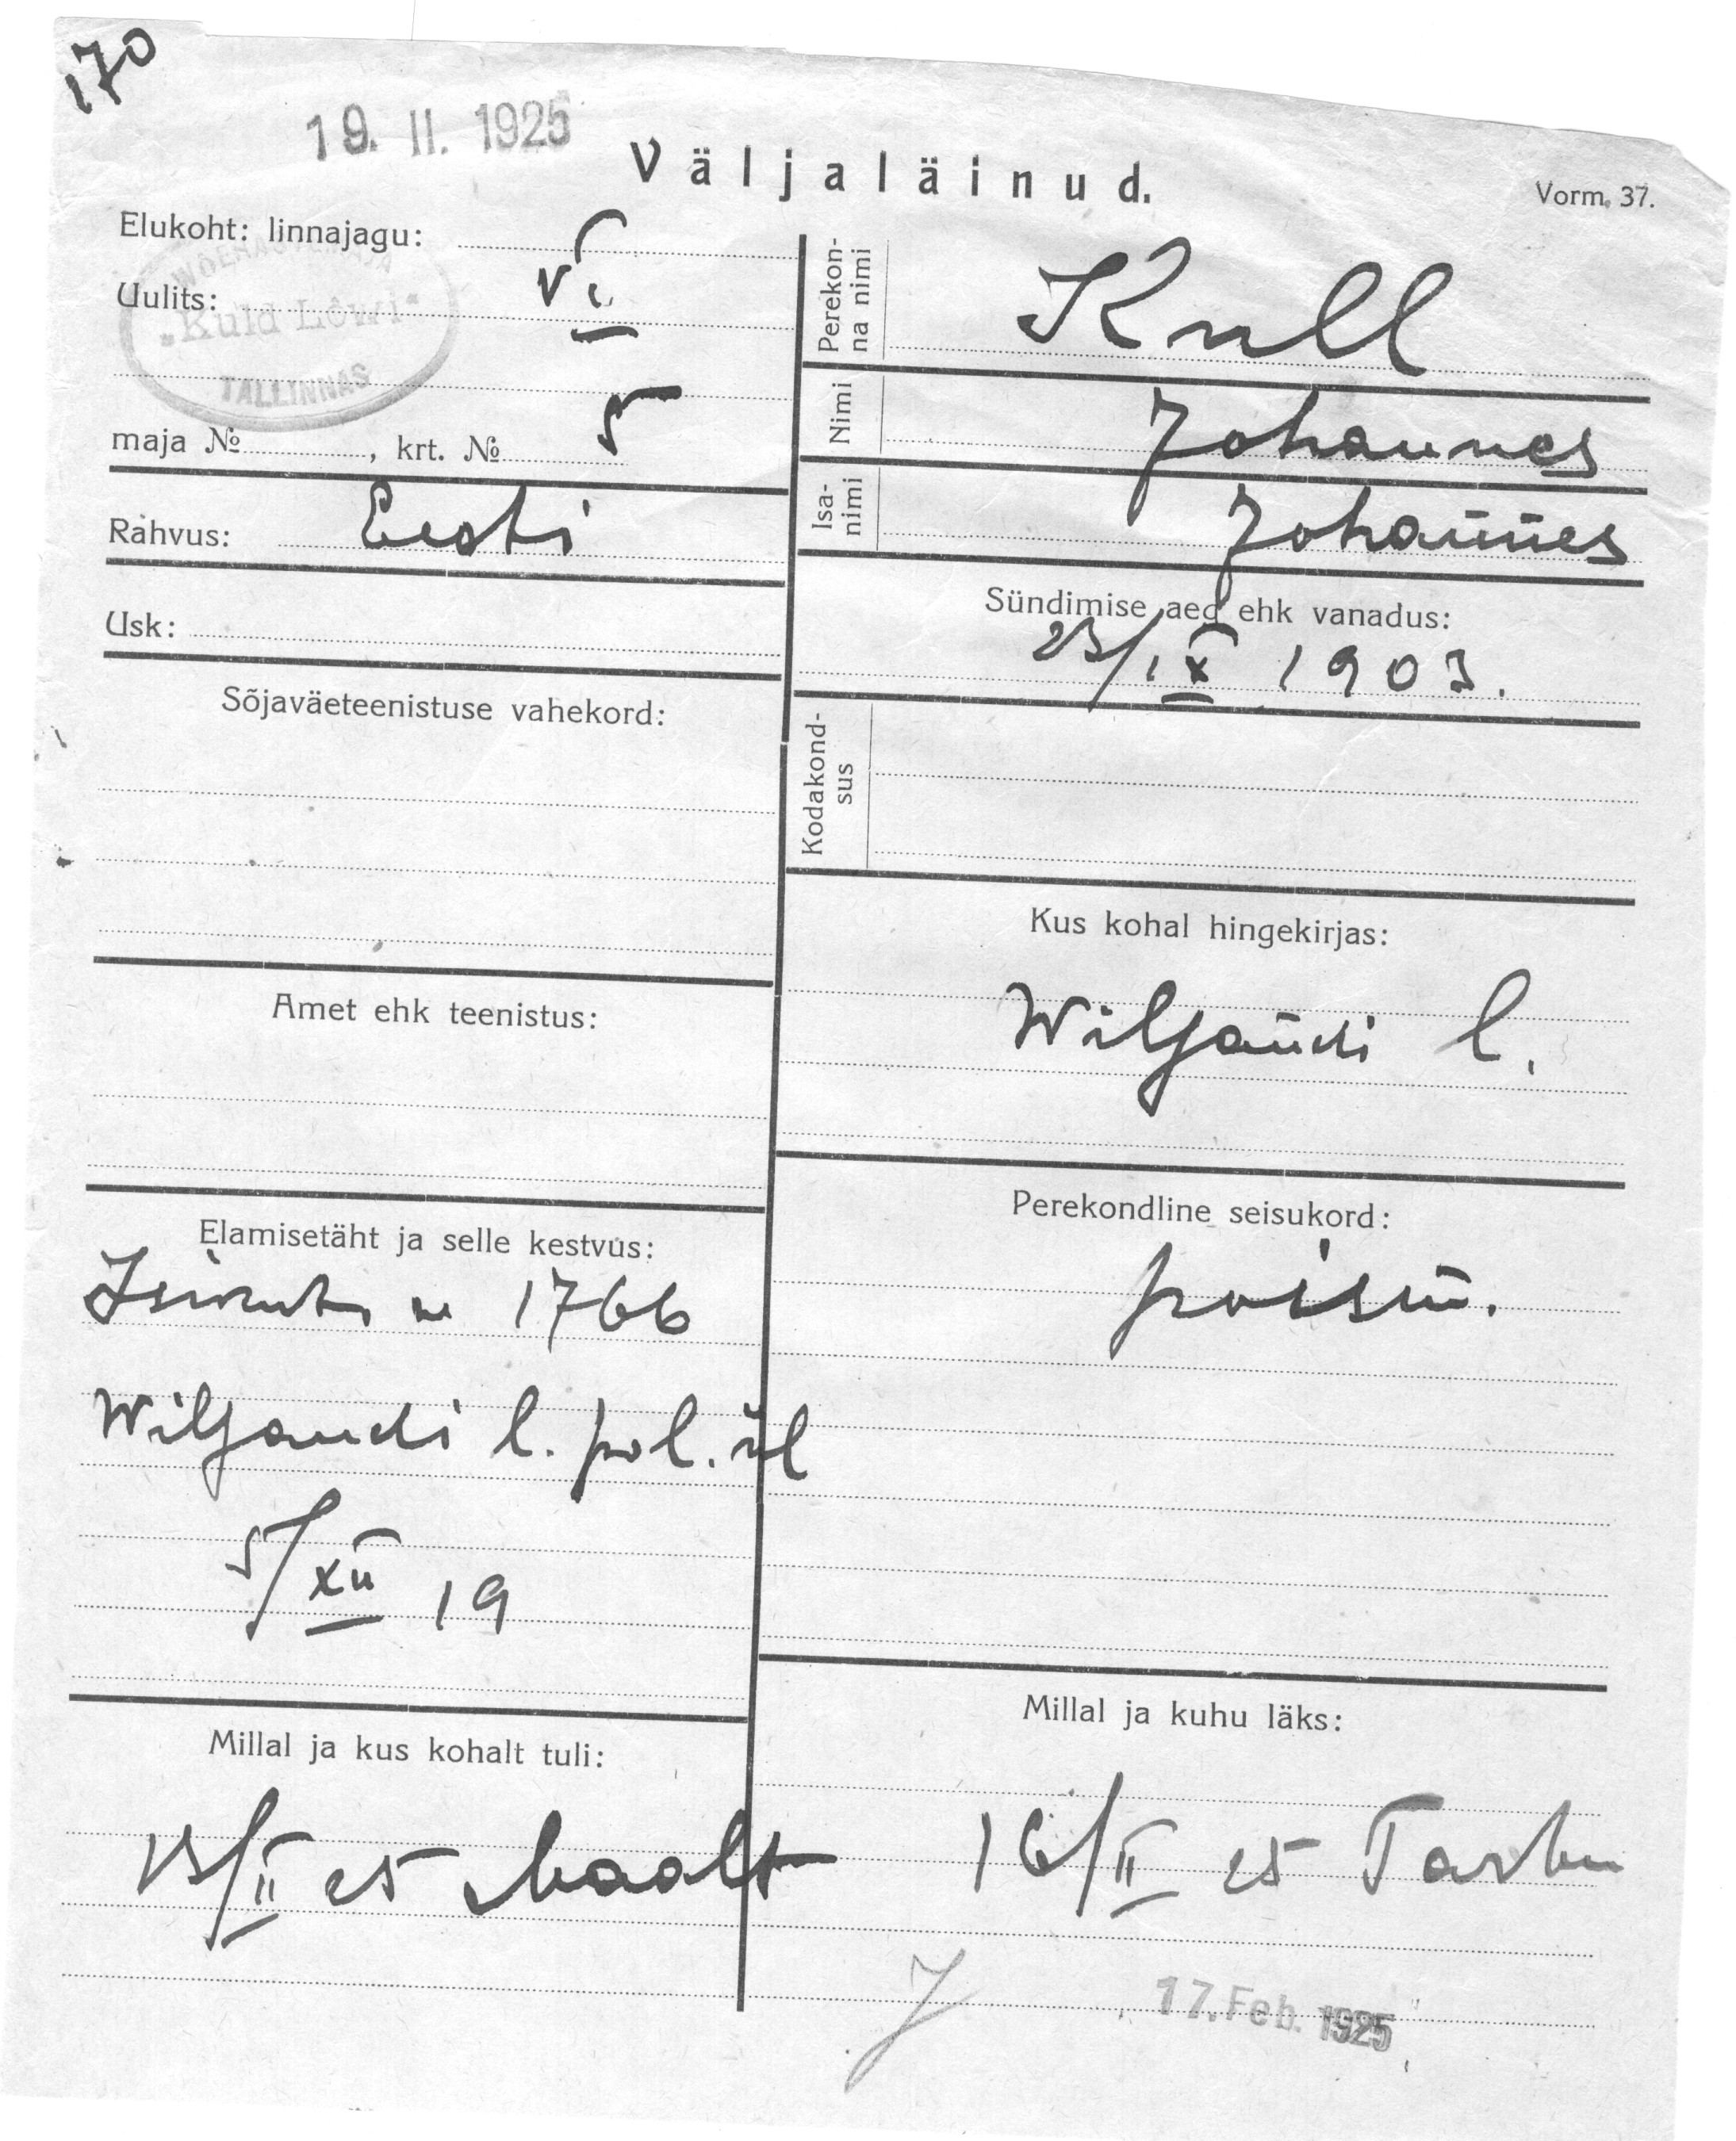 170
19. II. 1925
Väljaläinud.
Vorm. 37.
Elukoht: linnajagu:
VI
Uulits:
WÕERASTEMAJA
„Kuld Lôwi"
TALLINNAS
maja № , krt. № 5
Rahvus: Eesti
Usk:
Sõjaväeteenistuse vahekord:
Amet ehk teenistus:
Elamisetäht ja selle kestvus:
№ 1766
Wiljandi l. pol. ül
5/XII 19
Millal ja kus kohalt tuli:
13/II 25 Maalt
Perekon-
na nimi
Kull
Nimi
Johannes
Isa-
nimi
Johannes
Sündimise aeg ehk vanadus:
23/IX 1903.
Kodakond-
sus
Kus kohal hingekirjas:
Wiljandi l.
Perekondline seisukord:
poism.
Millal ja kuhu läks:
16/II 25 Tartu
17. Feb. 1925